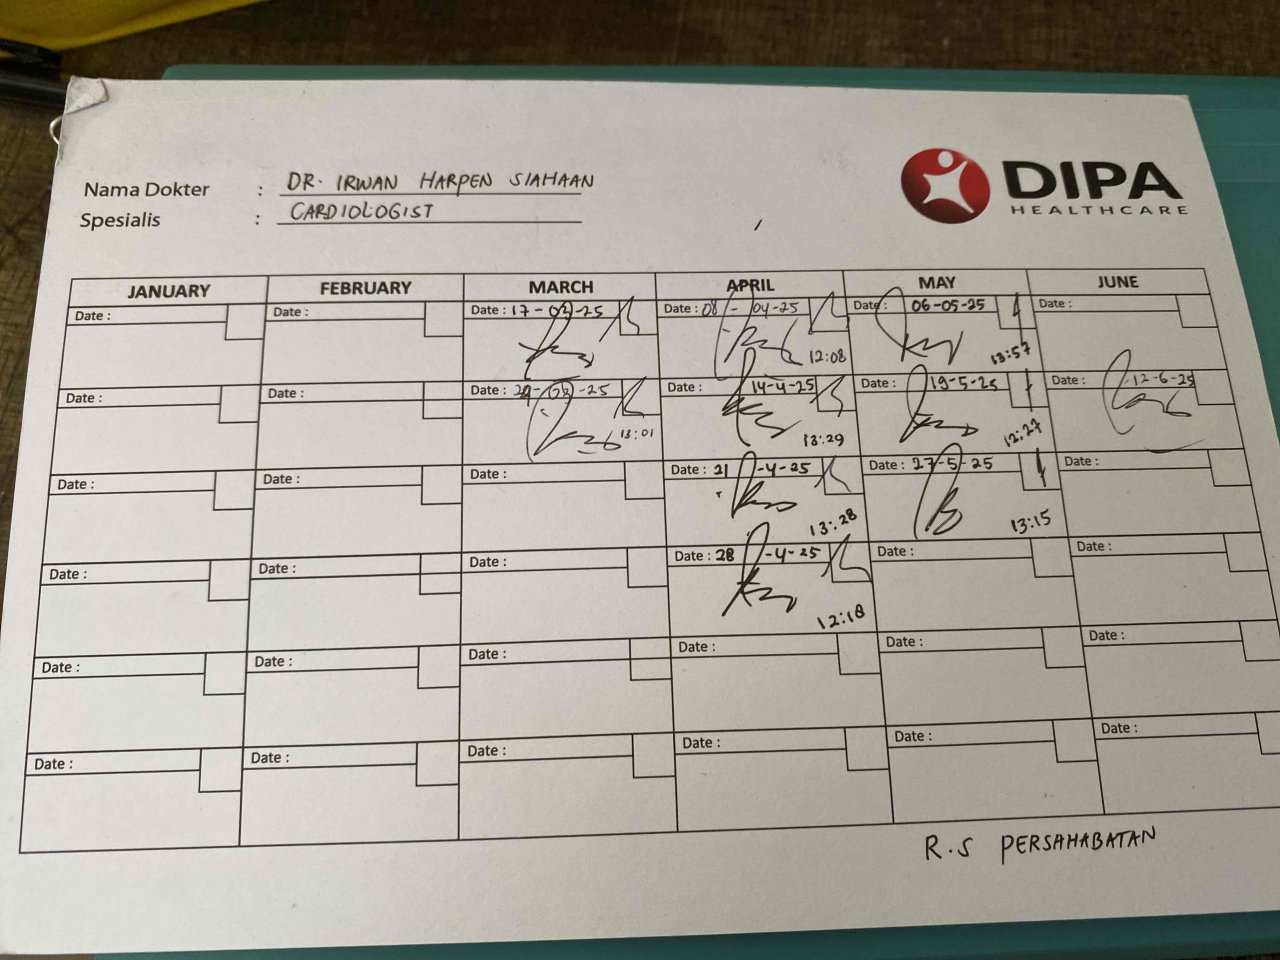 DIPA
HEALTHCARE
Nama Dokter : DR. IRWAN HARPEN SIAHAAN
Spesialis : CARDIOLOGIST
JANUARY FEBRUARY MARCH APRIL MAY JUNE
Date : Date : Date : 17-03-25 Date : 08-04-25 Date : 06-05-25 Date :
12:08 13:57
Date : Date : Date : 24-03-25 Date : 14-4-25 Date : 19-5-25 Date : 12-6-25
13:01 13:29 12:27
Date : Date : Date : Date : 21-4-25 Date : 27-5-25 Date :
13:28 13:15
Date : Date : Date : Date : 28-4-25 Date : Date :
12:18
Date : Date : Date : Date : Date : Date :
Date : Date : Date : Date : Date : Date :
R.S PERSAHABATAN